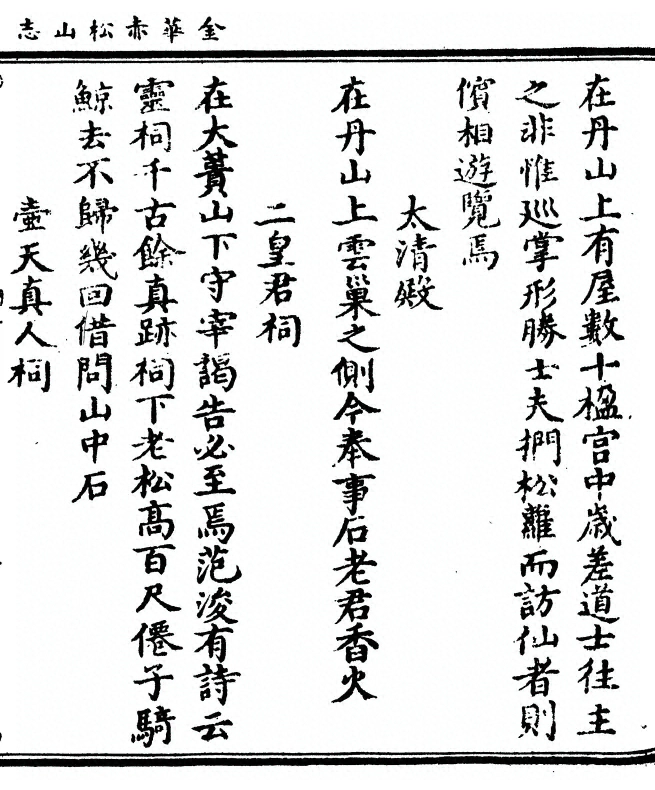 金華赤松山志
在丹山上有屋數十楹宫中歲差道士往主
之非惟廵掌形勝士夫捫松蘿而訪仙者則
儐相遊覽焉
太清殿
在丹山上雲巢之側今奉事石老君香火
二皇君祠
在大蕢山下守宰謁告必至焉范浚有詩云
靈祠千古餘真跡祠下老松高百尺僊子騎
鯨去不歸幾回借問山中石
壺天真人祠